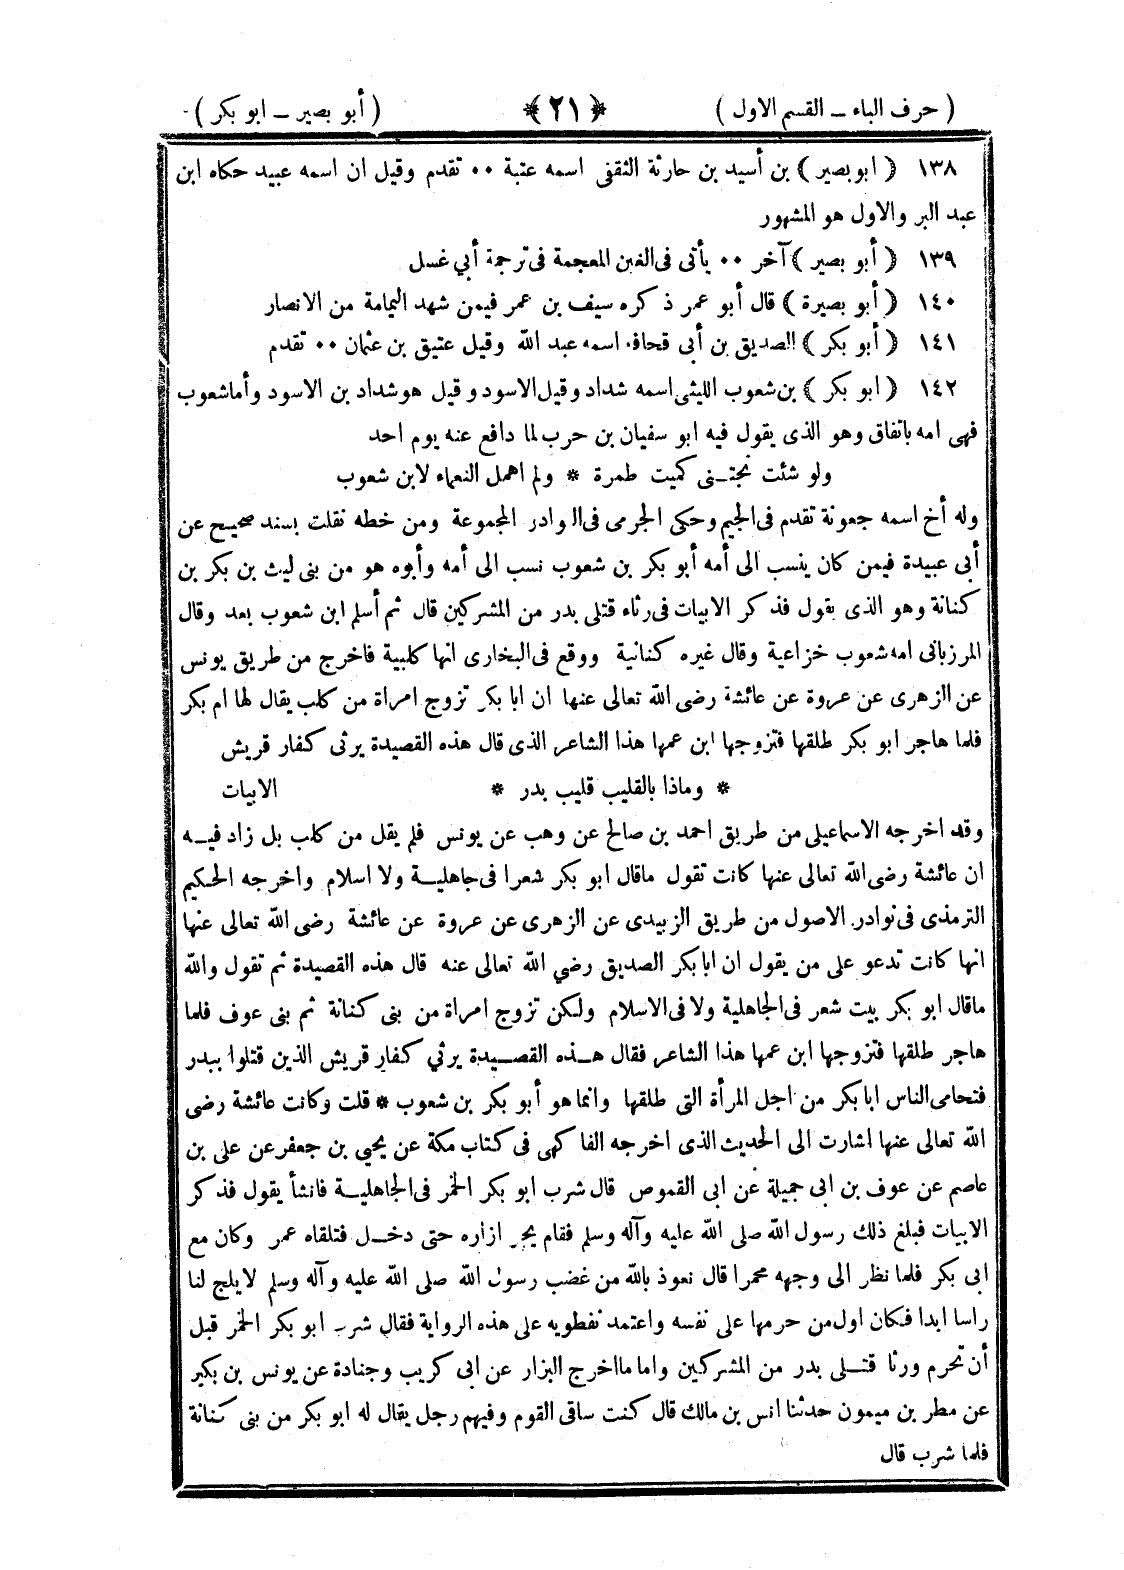 ( حرف الباء ــ القسم الاول ) ﴿ ٢١ ﴾ ( أبو بصير ــ ابو بكر )
١٣٨ ﴿ ابو بصير ﴾ بن أسيد بن حارثة الثقفى اسمه عتبة ٠٠ تقدم وقيل ان اسمه عبيد حكاه ابن
عبد البر والاول هو المشهور
١٣٩ ﴿ أبو بصير ﴾ آخر ٠٠ يأتى فى الغين المعجمة فى ترجمة أبي غسل
١٤٠ ﴿ أبو بصيرة ﴾ قال أبو عمر ذكره سيف بن عمر فيمن شهد اليمامة من الانصار
١٤١ ﴿ أبو بكر ﴾ الصديق بن أبى قحافه اسمه عبد الله وقيل عتيق بن عثمان ٠٠ تقدم
١٤٢ ﴿ ابو بكر ﴾ بن شعوب الليثى اسمه شداد وقيل الاسود وقيل هو شداد بن الاسود وأما شعوب
فهى امه باتفاق وهو الذى يقول فيه ابو سفيان بن حرب لما دافع عنه يوم احد
ولو شئت نجتـنى كميت طمرة * ولم احمل النعماء لابن شعوب
وله أخ اسمه جعونة تقدم فى الجيم وحكى الجرمى فى النوادر المجموعة ومن خطه نقلت بسند صحيح عن
أبى عبيدة فيمن كان ينسب الى أمه أبو بكر بن شعوب نسب الى أمه وأبوه هو من بنى ليث بن بكر بن
كنانة وهو الذى يقول فذكر الابيات فى رثاء قتلى بدر من المشركين قال ثم أسلم ابن شعوب بعد وقال
المرزبانى امه شعوب خزاعية وقال غيره كنانية ووقع فى البخارى انها كلبية فاخرج من طريق يونس
عن الزهرى عن عروة عن عائشة رضى الله تعالى عنها ان ابا بكر تزوج امراة من كلب يقال لها ام بكر
فلما هاجر ابو بكر طلقها فتزوجها ابن عمها هذا الشاعر الذى قال هذه القصيدة يرثى كفار قريش
* وماذا بالقليب قليب بدر * الابيات
وقد اخرجه الاسماعيلى من طريق احمد بن صالح عن وهب عن يونس فلم يقل من كلب بل زاد فيـه
ان عائشة رضى الله تعالى عنها كانت تقول ماقال ابو بكر شعرا فى جاهليـة ولا اسلام واخرجه الحكيم
الترمذى فى نوادر الاصول من طريق الزبيدى عن الزهرى عن عروة عن عائشة رضى الله تعالى عنها
انها كانت تدعو على من يقول ان ابا بكر الصديق رضي الله تعالى عنه قال هذه القصيدة ثم تقول والله
ماقال ابو بكر بيت شعر فى الجاهلية ولا فى الاسلام ولكن تزوج امراة من بنى كنانة ثم بنى عوف فلما
هاجر طلقها فتزوجها ابن عمها هذا الشاعر فقال هـذه القصـيدة يرثي كفار قريش الذين قتلوا ببدر
فتحامى الناس ابا بكر من اجل المرأة التى طلقها وانما هو أبو بكر بن شعوب * قلت وكانت عائشة رضى
الله تعالى عنها اشارت الى الحديث الذى اخرجه الفاكهى فى كتاب مكة عن يحيي بن جعفر عن على بن
عاصم عن عوف بن ابى جميلة عن ابى القموص قال شرب ابو بكر الخمر فى الجاهليـة فانشأ يقول فذكر
الابيات فبلغ ذلك رسول الله صلى الله عليه وآله وسلم فقام يجر ازاره حتى دخـل فتلقاه عمر وكان مع
ابى بكر فلما نظر الى وجهه محمرا قال نعوذ بالله من غضب رسول الله صلى الله عليه وآله وسلم لا يلج لنا
راسا ابدا فكان اول من حرمها على نفسه واعتمد نفطويه على هذه الرواية فقال شرب ابو بكر الخمر قبل
أن تحرم ورثا قتـلى بدر من المشركين واما مااخرج البزار عن ابى كريب وجنادة عن يونس بن بكير
عن مطر بن ميمون حدثنا انس بن مالك قال كنت ساقى القوم وفيهم رجل يقال له ابو بكر من بنى كنانة
فلما شرب قال